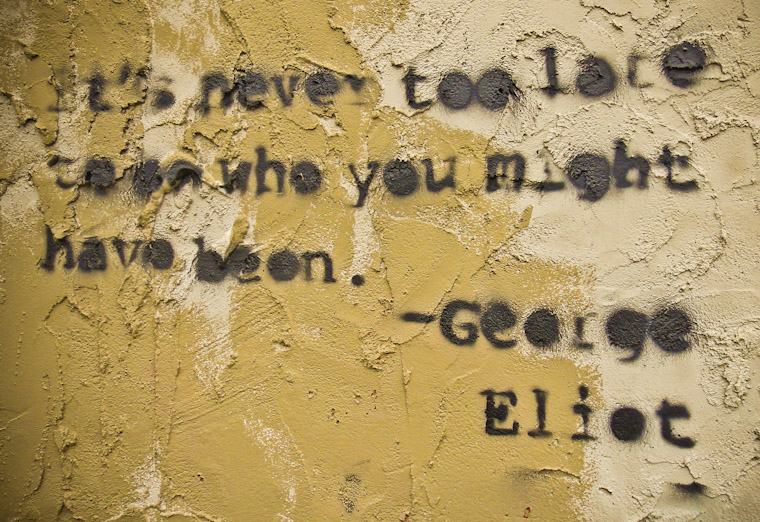 It's never too late
to be who you might
have been.
-George
Eliot